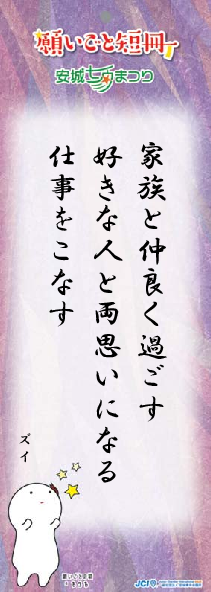 願いごと短冊
安城七夕まつり
家族と仲良く過ごす
好きな人と両思いになる
仕事をこなす
ズイ
JCI